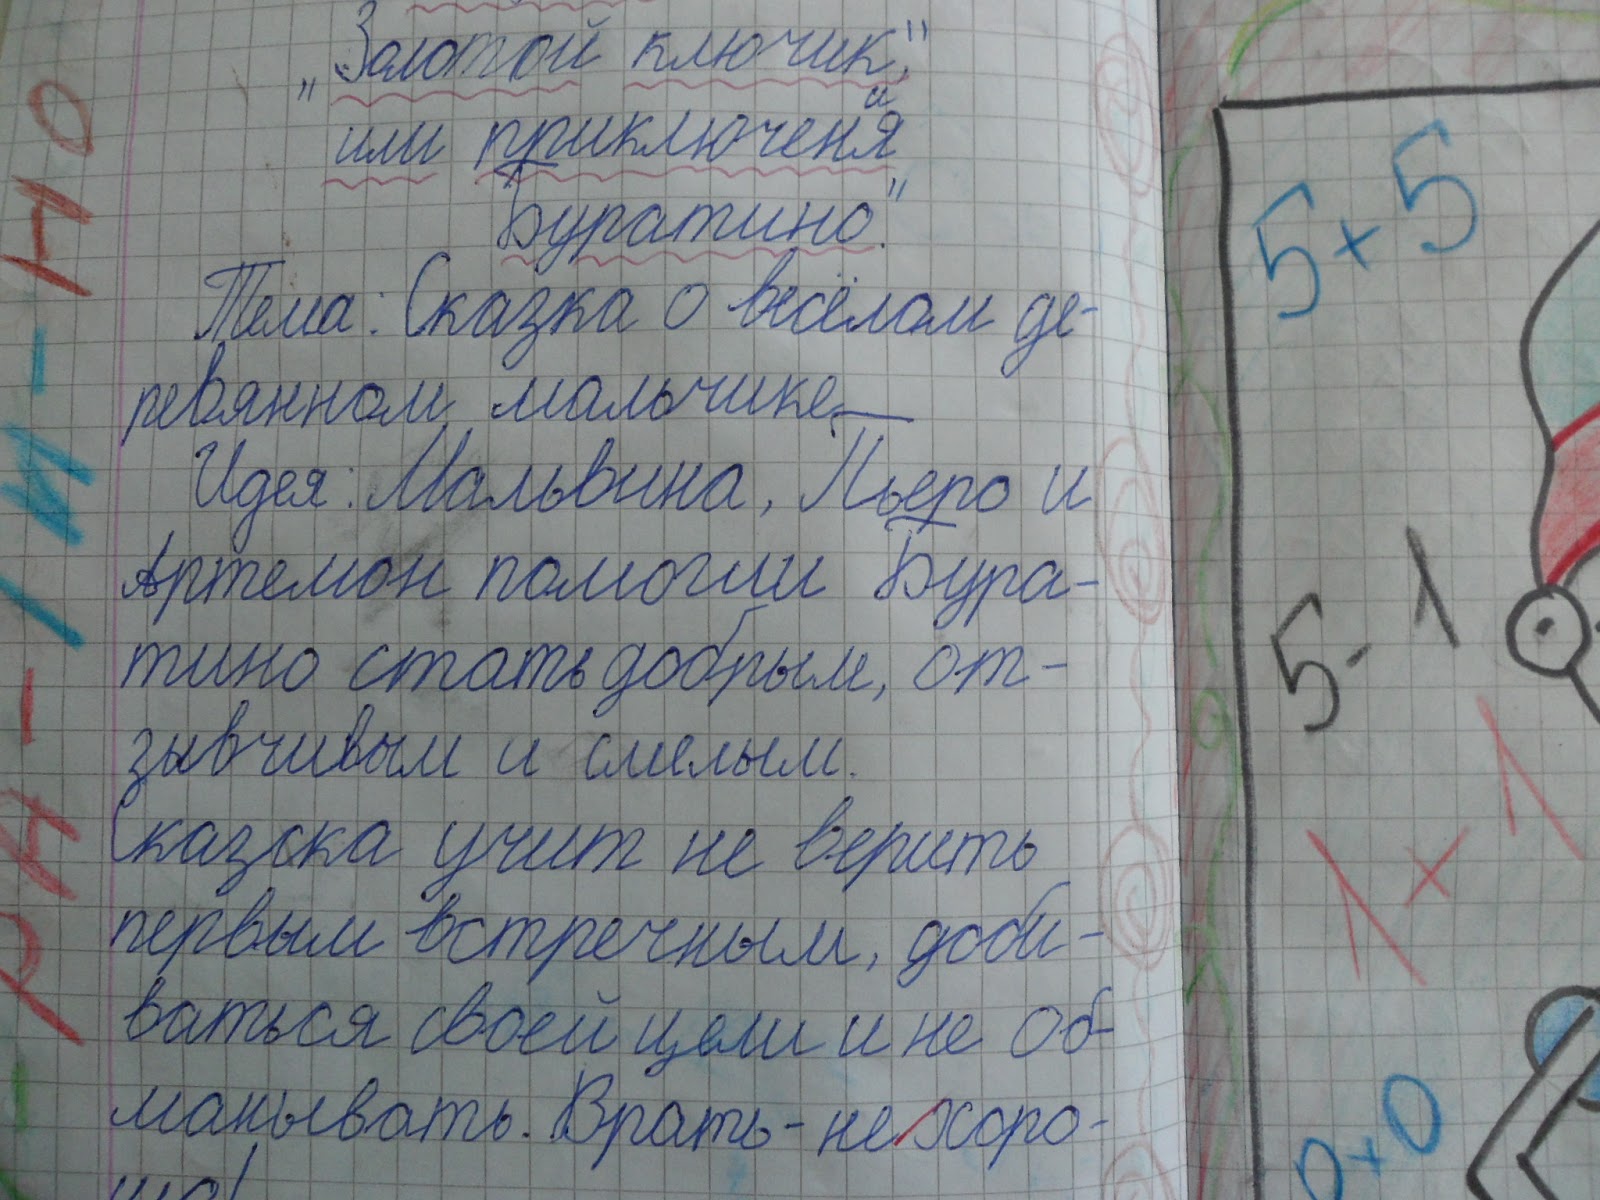 „Золотой ключик,"
или приключеня
и
Буратино."
Тема: Сказка о весёлом де-
ревянном мальчике.
Идея: Мальвина, Пьеро и
Артемон помогли Бура-
тино стать добрым, от-
зывчивым и смелым.
Сказска учит не верить
первым встречным, доби-
ваться своей цели и не об-
манывать. Врать - не хоро-
шо!
РА-ТИ-НО
5+5
5-1
1+1
0+0